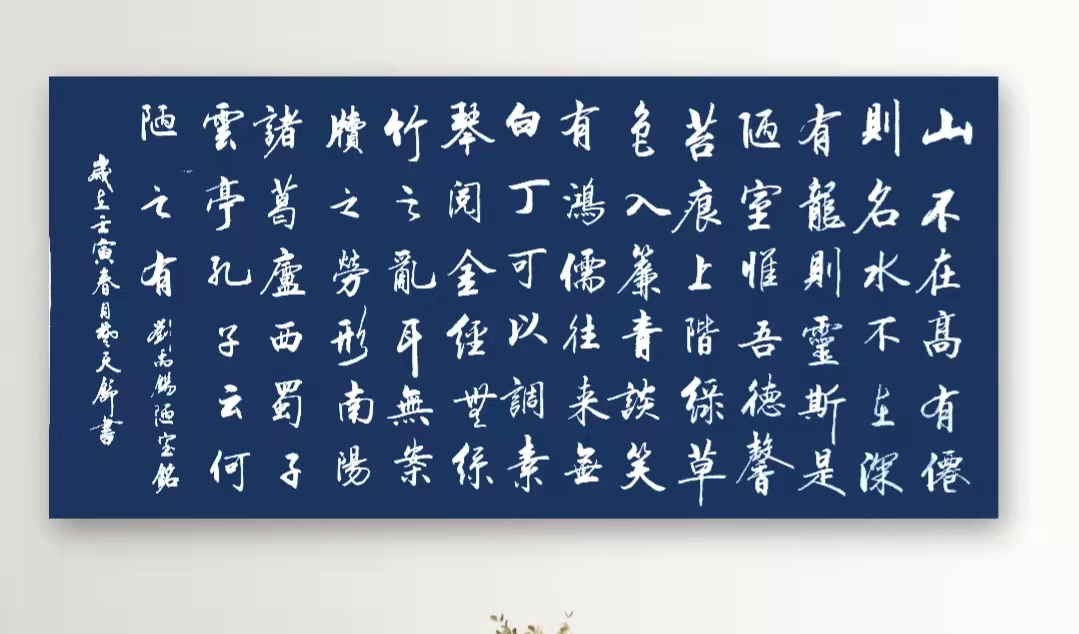 山不在高有僊
則名水不在深
有龍則靈斯是
陋室惟吾德馨
苔痕上階綠草
色入簾青談笑
有鴻儒往来無
白丁可以調素
琴閱金經無絲
竹之亂耳無案
牘之勞形南陽
諸葛廬西蜀子
雲亭孔子云何
陋之有
劉禹錫陋室銘
歲在壬寅春月書